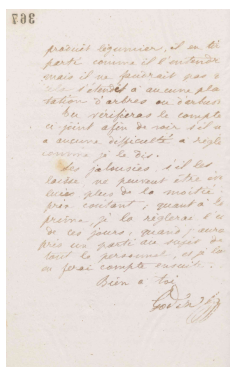 367
produit légumier, il en ti
parti comme il l'entendr
mais il ne faudrait pas q
cela s'étendît à aucune pla
tation d'arbres ou d'arbus
Tu vérifieras le compte
ci-joint afin de voir s'il n
a aucune difficulté à régle
comme je le dis.
Les jalousies, s'il les
ne peuvent être
plus de la moitié
prix coûtant, quant à
je la réglerai
de ces jours, quand j'aura
pris un parti au sujet de
tout le personnel, et j'
en ferai compte ensuite.
Bien à toi
Godin